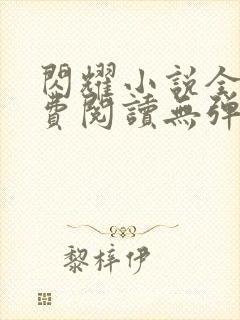 閃耀小說全
費閱讀無彈
黎梓伊